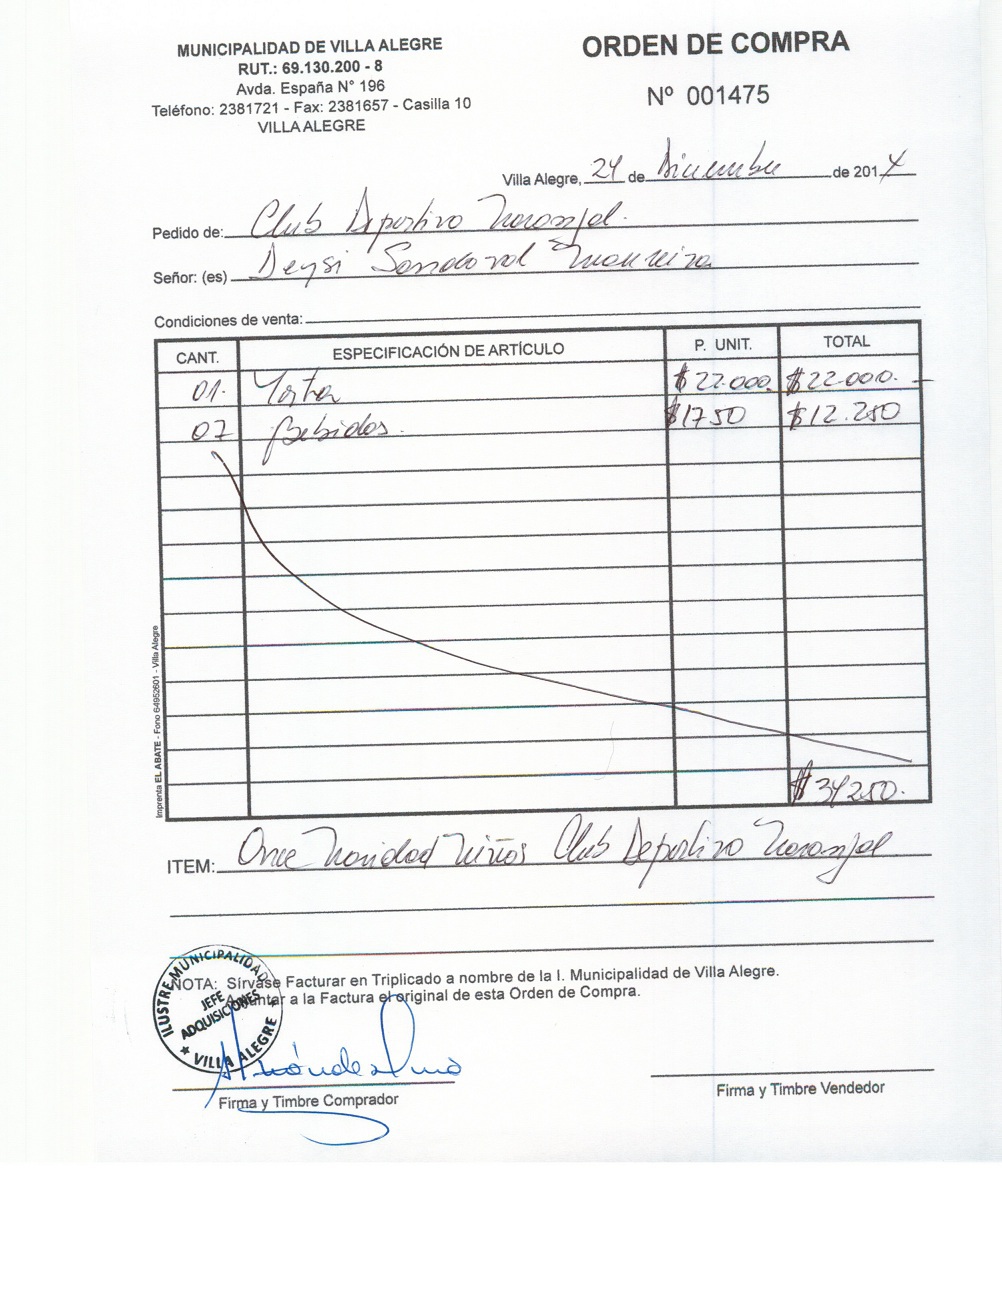 MUNICIPALIDAD DE VILLA ALEGRE
RUT.: 69.130.200 - 8
Avda. España N° 196
Teléfono: 2381721 - Fax: 2381657 - Casilla 10
VILLA ALEGRE
ORDEN DE COMPRA
Nº 001475
Villa Alegre, 24 de Diciembre de 2014
Pedido de: Club Deportivo Naranjal.
Señor: (es) Deysi Sandoval
Condiciones de venta:
CANT. ESPECIFICACIÓN DE ARTÍCULO P. UNIT. TOTAL
01. Torta $22.000. $22.000.-
07 Bebidas. $1750 $12.250
$34250.
Imprenta EL ABATE - Fono 64952601 - Villa Alegre
ITEM: Once Navidad Niños Club Deportivo Naranjal
NOTA: Sírvase Facturar en Triplicado a nombre de la I. Municipalidad de Villa Alegre.
Adjuntar a la Factura el original de esta Orden de Compra.
ILUSTRE MUNICIPALIDAD
JEFE
ADQUISICIONES
VILLA ALEGRE
Firma y Timbre Comprador
Firma y Timbre Vendedor